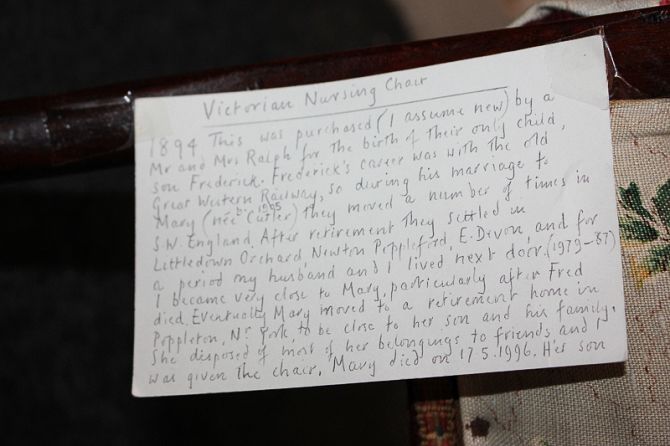 Victorian Nursing Chair
1894 This was purchased (I assume new) by a
Mr and Mrs Ralph for the birth of their only child,
son Frederick. Frederick's career was with the old
Great Western Railway, so during his marriage to
Mary (née Cutler) they moved a number of times in
b. 1905
S.W. England. After retirement they settled in
Littledown Orchard, Newton Poppleford, E. Devon, and for
a period my husband and I lived next door. (1979-87)
I became very close to Mary, particularly after Fred
died. Eventually Mary moved to a retirement home in
Poppleton, Nr York, to be close to her son and his family.
She disposed of most of her belongings to friends and I
was given the chair. Mary died on 17.5.1996. Her son